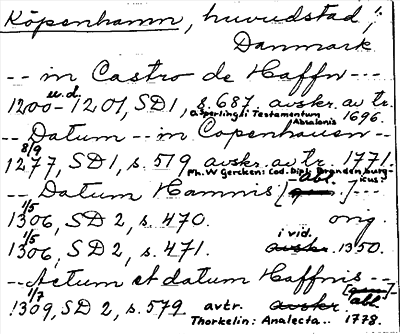 Köpenhamn, huvudstad i
Danmark
-- in Castro de Haffn ---
u.d.
1200-1201, SD1, s. 687 avskr. av tr.
O. Sperlingii Testamentum Absalonis 1696.
-- Datum -- in Copenhauen --
8/9
1277, SD1, s. 579 avskr. av tr. 1771.
Ph. W Gercken: Cod. Dipl. Brandenburgicus:
abl.
-- Datum Hamnis [gen.] ---
1/5
1306, SD 2, s. 470. orig.
1/5 i vid.
1306, SD 2, s. 471. avskr. 1350.
-- Actum et datum Haffnis --
[gen.] abl.
1/7
1309, SD 2, s. 579 avtr. avskr.
Thorkelin: Analecta.. 1778.